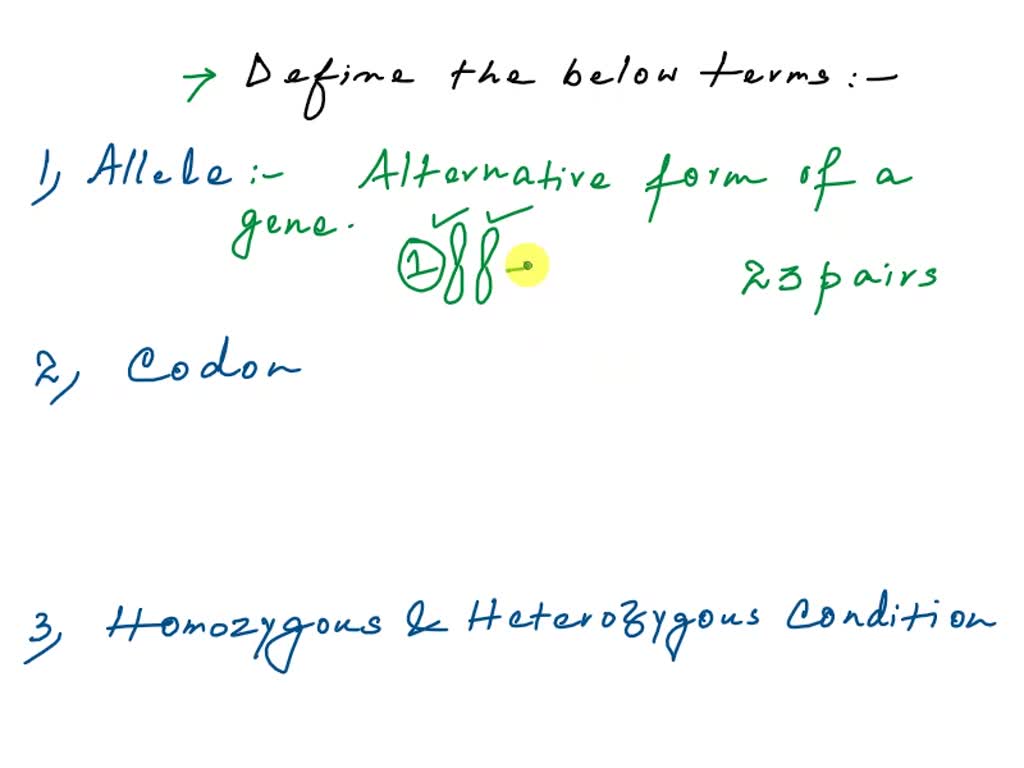 → Define the below terms:-
1, Allele:- Alternative form of a
gene.
1 23 pairs
2, Codon
3, Homozygous & Heterozygous Condition